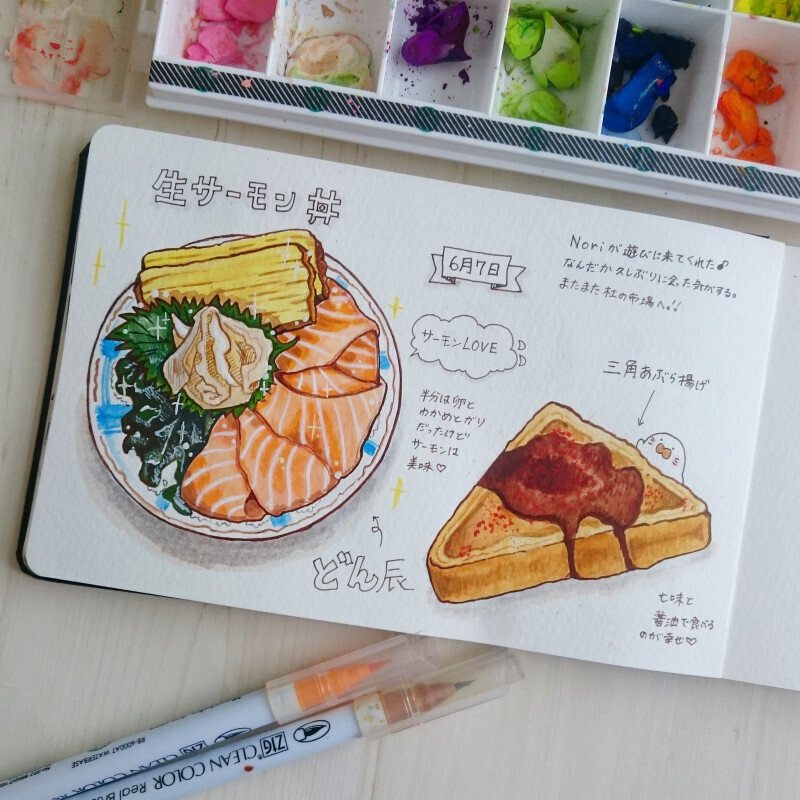 生サーモン丼
6月7日
Noriが遊びに来てくれた♪
なんだか久しぶりに会った気がする。
またまた杜の市場へ!!
サーモンLOVE
半分は卵と
わかめとガリ
だったけど
サーモンは
美味♡
三角あぶら揚げ
どん辰
七味と
醤油で食べる
のが幸せ♡
ZIG CLEAN COLOR Real Br
RB-6000AT WATERBASE
ZIG CLEAN COLOR Real Br